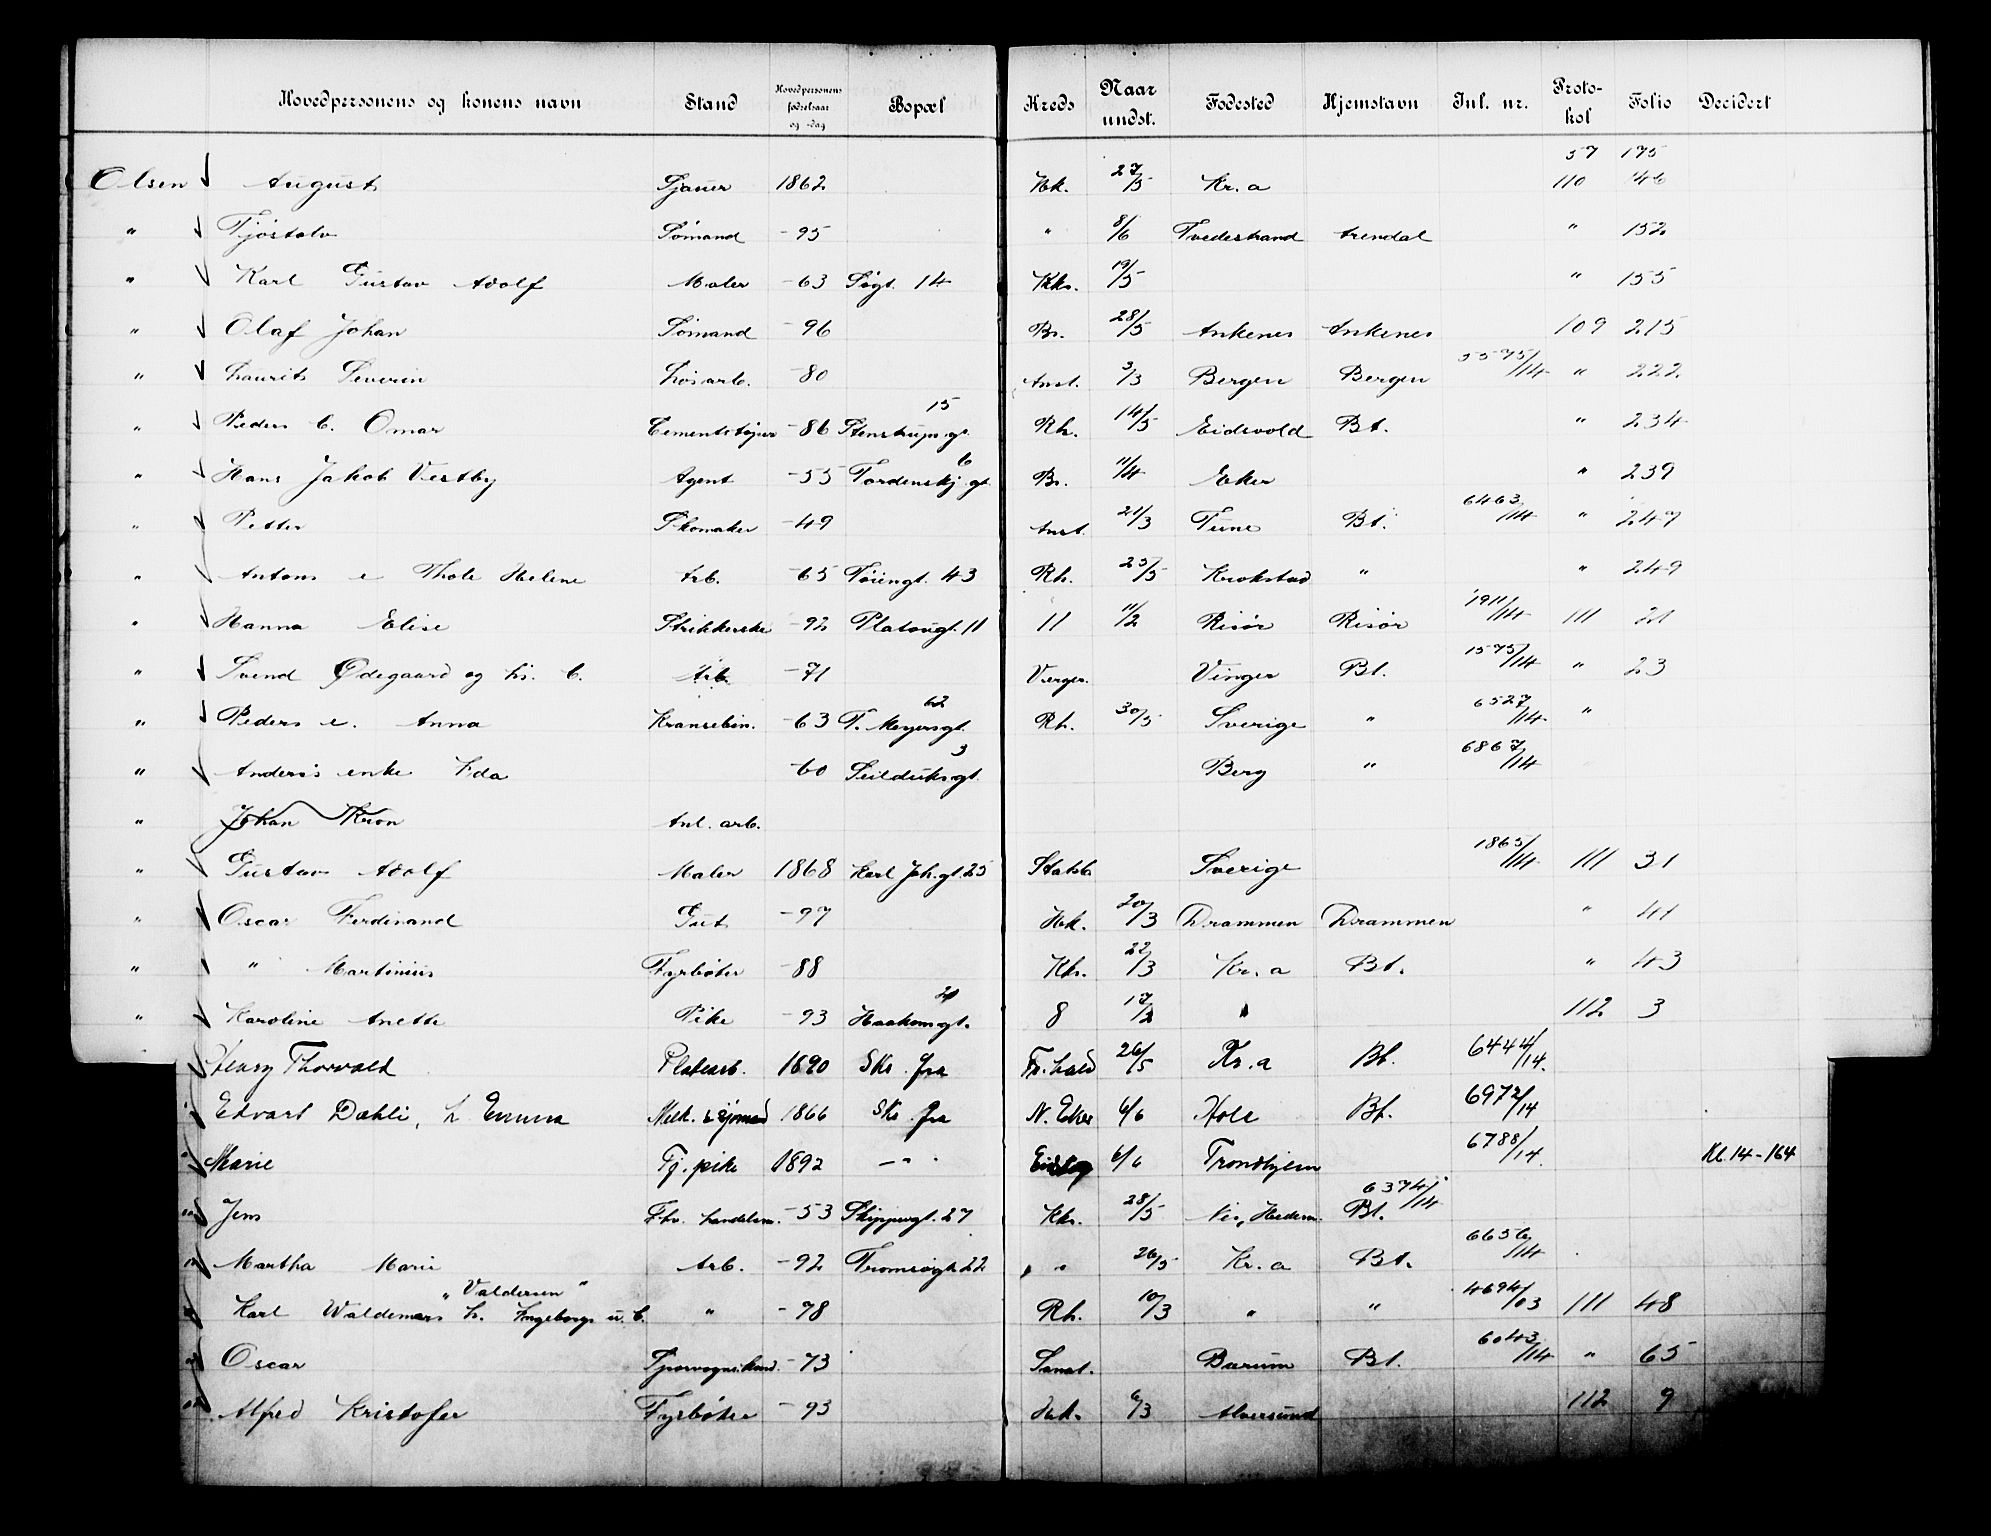 Hovedpersonens og konens navn Stand Hovedpersonens fødselsaar og -dag Bopæl Kreds Naar undst. Fødested Hjemstavn Jnl. nr. Proto-kol Folio Decidert
57 175
Olsen August Sjauer 1862 Hk. 27/5 Kr.a 110 46
" Tjøstolv Sømand -95 " 8/6 Tvedestrand Arendal " 152
" Karl Gustav Adolf Maler -63 Søgt. 14 Khs. 19/5 " 155
" Olaf Johan Sømand -96 Br. 28/5 Ankenes Ankenes 109 215
" Laurits Severin Løsarb. -80 Anst. 3/3 Bergen Bergen 5575/14 " 222
" Peders e. Omar Cementstøper -86 Stenstrupsgt. 15 Rh. 14/5 Eidsvold Bt. " 234
" Hans Jakob Vestby Agent -55 Tordenskj.gt. 6 Br. 11/4 Eker " 239
" Petter Skomaker -49 Anst. 21/3 Tune Bt. 6463/14 " 247
" Antons e Thole Helene Arb. -65 Tøiengt. 43 Rh. 25/5 Krokstad " " 249
" Hanna Elise Strikkerske -92 Platousgt. 11 11 11/2 Risør Risør 1911/14 111 21
" Svend Ødegaard og hs. e. Arb. -71 Værger. Vinger Bt. 1575/14 " 23
" Peders e. Anna Kransebin. -63 T. Meyersgt. 62 Rh. 30/5 Sverige " 6527/14 "
" Anders's enke Eda -60 Seilduksgt. 3 Berg " 6867/14
" Johan Kron Anl. arb.
" Gustav Adolf Maler 1868 Karl Joh.gt. 25 Stabb. Sverige 1865/14 111 31
" Oscar Ferdinand Gut -97 Hk. 20/3 Drammen Drammen " 41
" " Martinius Fyrbøter -88 Kh. 22/3 Kr.a Bt. " 43
" Karoline Anette Pike -93 Haakonsgt. 21 8 17/2 " 112 3
Henry Thorvald Platearb. 1890 Sks. fra Fr.hald 26/5 Kr.a Bt. 6444/14.
Edvart Dahli, h. Emma Mek. & sjømand 1866 Sks. fra N. Eker 6/6 Hole Bt. 6972/14
Marie Tj. pike 1892 — " " 6/6 Trondhjem 6788/14. Kl. 14-164
" Jens Fhv. handelsm. -53 Skippergt. 27 Khs. 28/5 Nes, Hedem. Bt. 6374/14
" Martha Marie Arb. -92 Tromsøgt. 22 " 26/5 Kr.a Bt. 6656/14
" Valdersen "
Karl Waldemars h. Ingeborg u. e. " -78 Rh. 10/3 " " 4694/03 111 48
Oscar Sporvognskond. -73 Sanat. Bærum Bt. 6043/14 " 65
Alfred Kristofer Fyrbøter -93 Hk. 6/3 Alversund 112 9